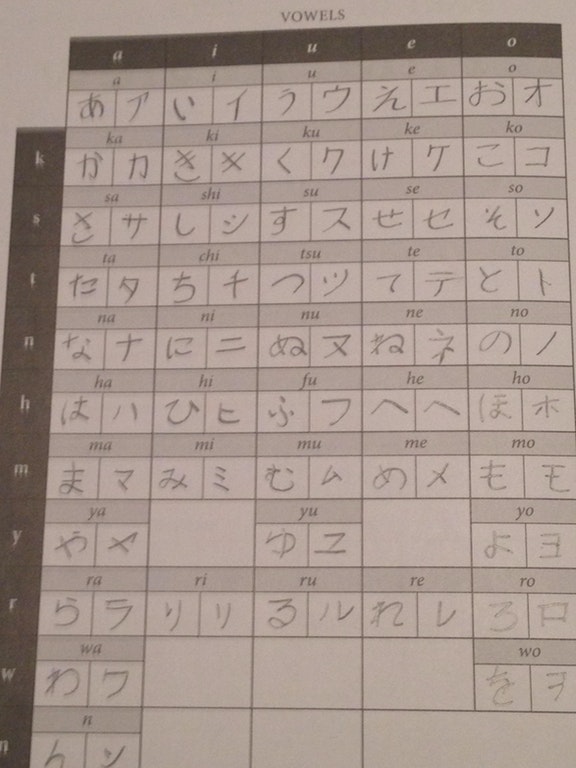 VOWELS
a i u e o
a i u e o
あ ア い イ う ウ え エ おう オ
k ka ki ku ke ko
か カ き キ く ク け ケ こ コ
s sa shi su se so
さ サ し シ す ス せ セ そ ソ
t ta chi tsu te to
た タ ち チ つ ツ て テ と ト
n na ni nu ne no
な ナ に ニ ぬ ヌ ね ネ の ノ
h ha hi fu he ho
は ハ ひ ヒ ふ フ へ ヘ ほ ホ
m ma mi mu me mo
ま マ み ミ む ム め メ も モ
y ya yu yo
や ヤ ゆ ユ よ ヨ
r ra ri ru re ro
ら ラ り リ る ル れ レ ろ ロ
w wa wo
わ ワ を ヲ
n n
ん ン